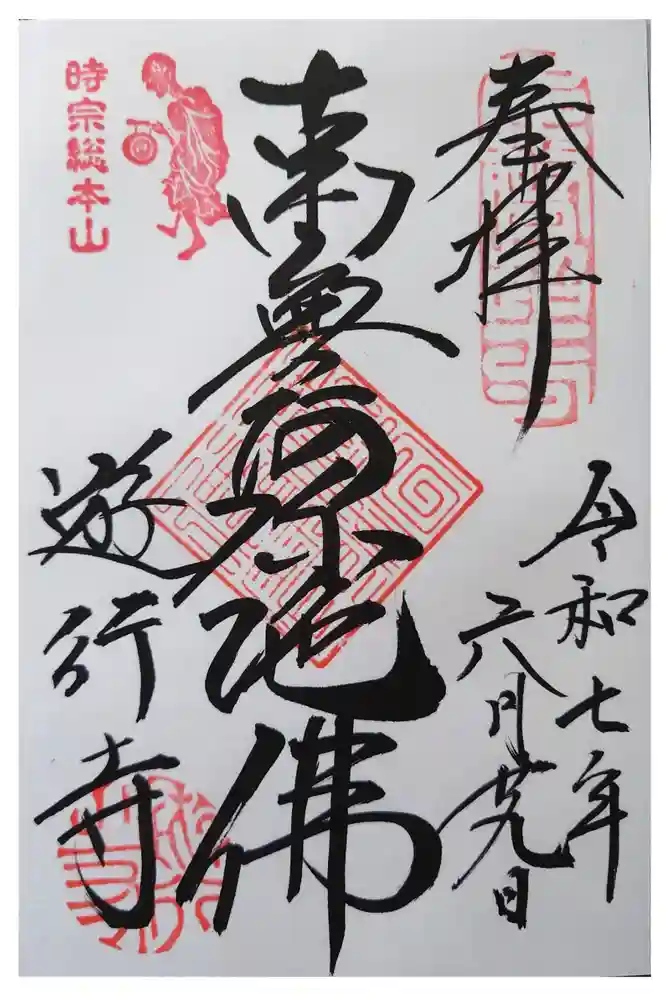 奉拝
令和七年
六月廿九日
南無阿弥陀佛
時宗総本山
遊行寺